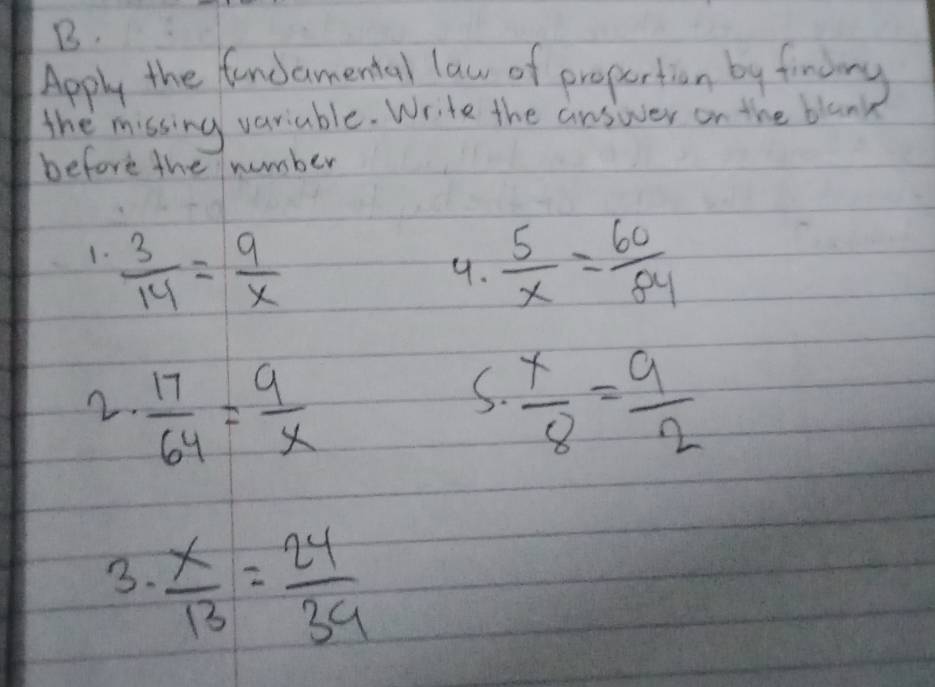 B.
Apply the fundamental law of proportion by finding
the missing variable. Write the answer on the blank
before the number
1. 3/14 = 9/x
4. 5/x = 60/84
2. 17/64 = 9/x
5. x/8 = 9/2
3. x/13 = 24/39